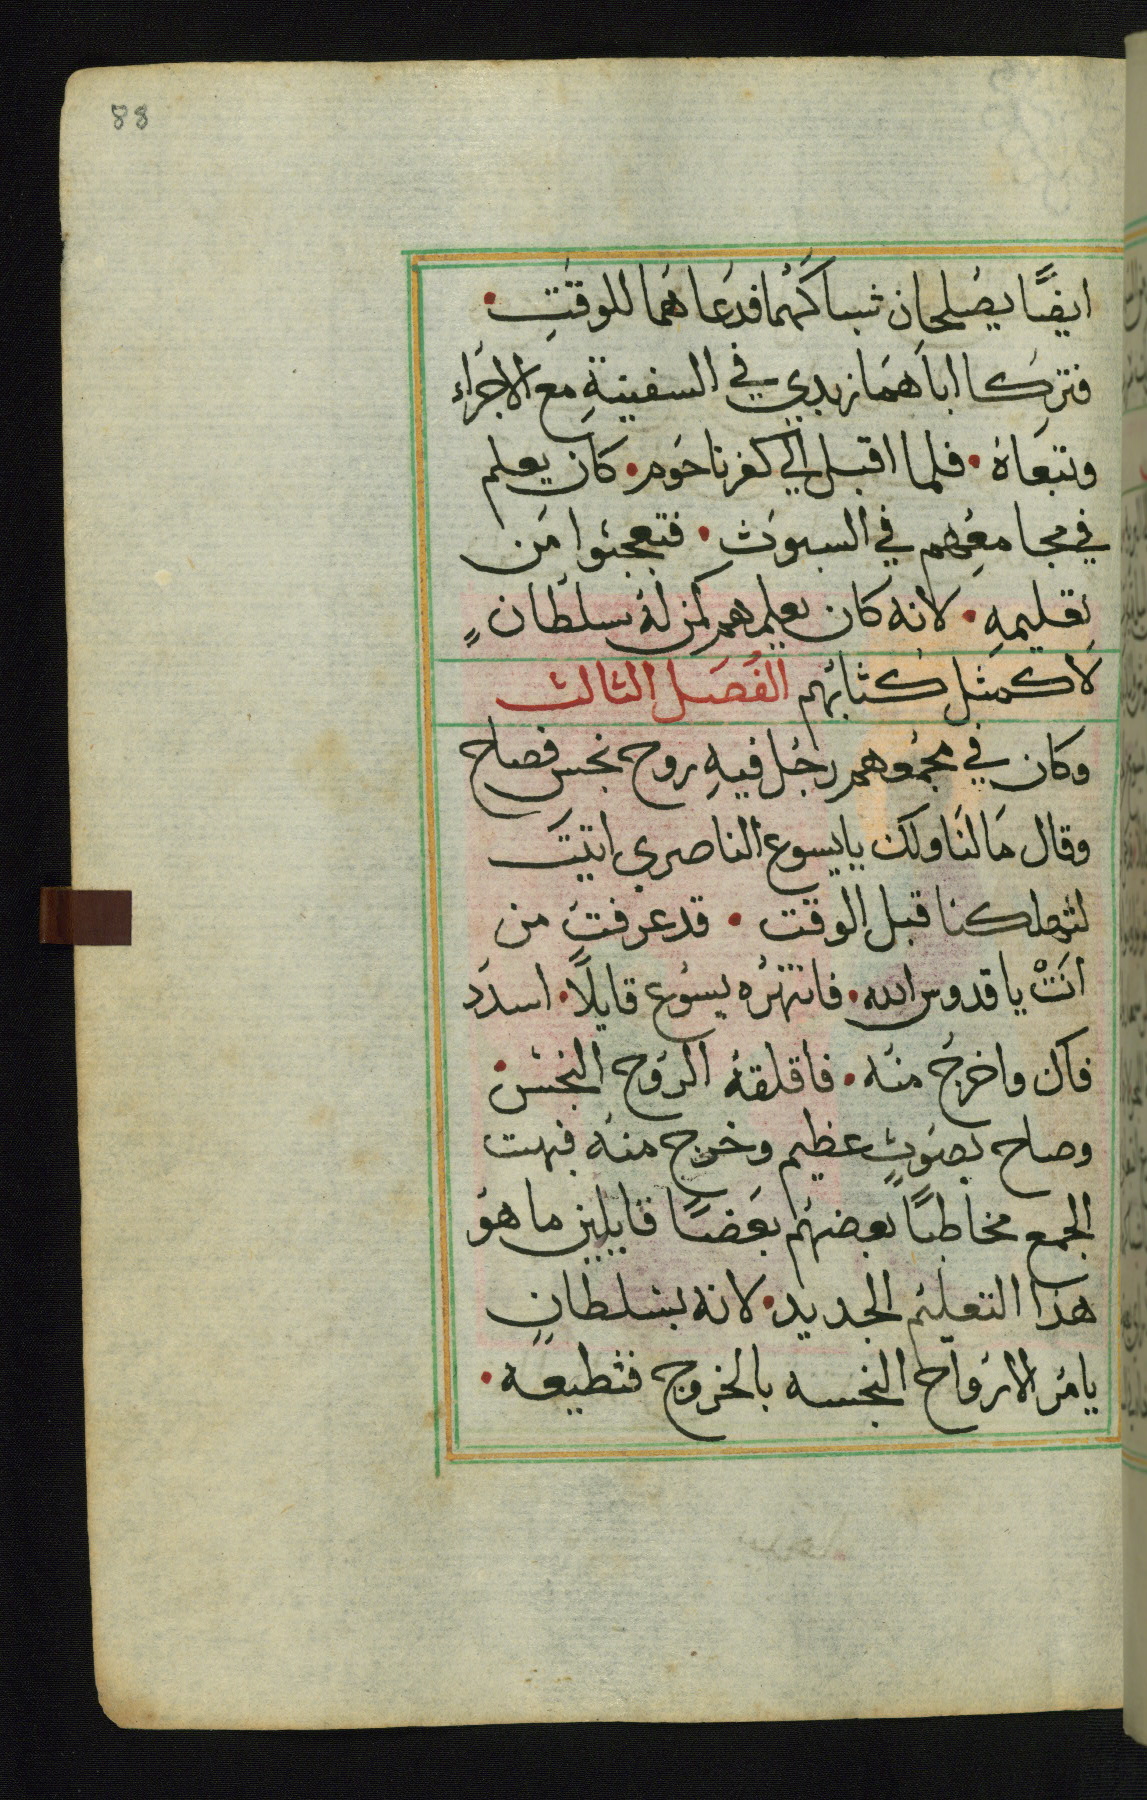 88
ايضًا يصلحان شباكهما فدعاهما للوقت
فتركا اباهما زبدي في السفينة مع الاجراء
وتبعاه • فلما اقبل الي كفرناحوم • كان يعلم
في مجامعهم في السبوت • فتعجبوا من
تعليمه • لانه كان يعلمهم كمن له سلطان
لا كمثل كتابهم الفصل الثالث
وكان في مجموهم رجل فيه روح نجس فصاح
وقال ما لنا ولك يا يسوع الناصري اتيت
لتهلكنا قبل الوقت • قد عرفت من
انت يا قدوس الله • فانتهره يسوع قايلًا • اسدد
فاك واخرج منه • فاقلقه الروح النجس
وصاح بصوت عظيم وخرج منه فبهت
الجمع مخاطبًا بعضهم بعضًا قايلين ما هو
هذا التعليم الجديد • لانه بسلطان
يامر الارواح النجسه بالخروج فتطيعه •